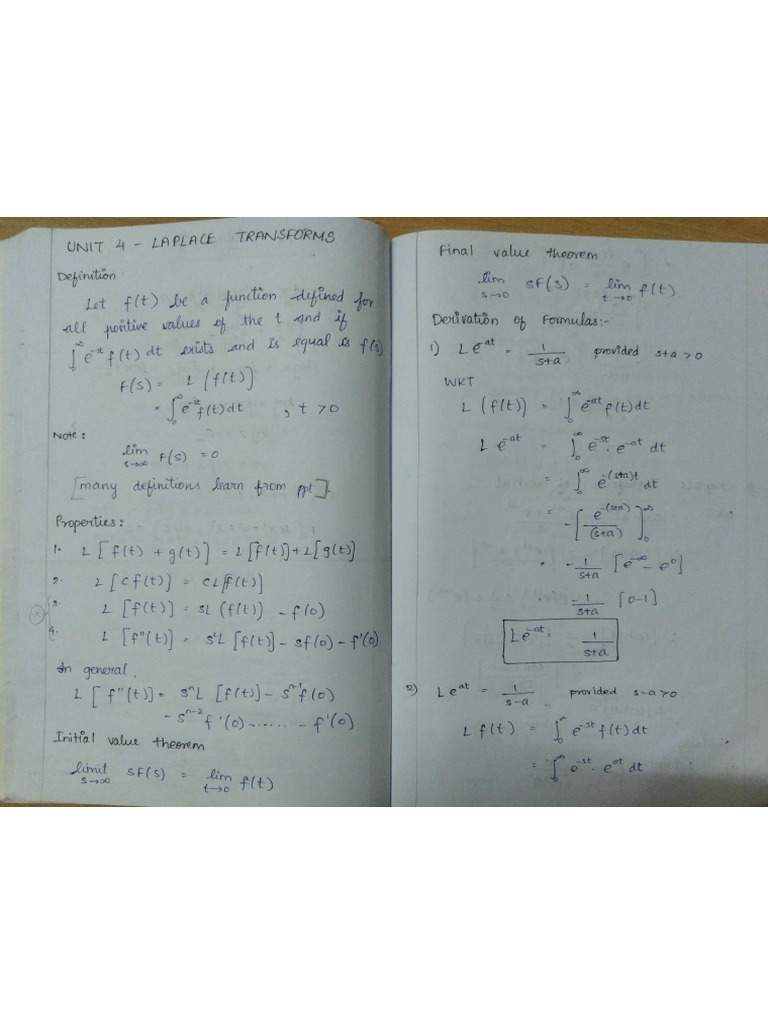 UNIT 4 - LAPLACE TRANSFORMS
Definition
Let f(t) be a function defined for
all positive values of the t and if
∫₀^∞ e^-st f(t) dt exists and is equal is f(s)
F(s) = L(f(t)]
= ∫₀^∞ e^-st f(t) dt , t > 0
Note:
lim s→∞ F(s) = 0
[many definitions learn from ppt]
Properties:
1. L[f(t) + g(t)] = L[f(t)] + L[g(t)]
2. L[cf(t)] = cL[f(t)]
3. L[f'(t)] = sL(f(t)) - f(0)
4. L[f''(t)] = s²L[f(t)] - sf(0) - f'(0)
In general
L[fⁿ(t)] = sⁿL[f(t)] - s^n-1 f(0)
- s^n-2 f'(0) ....... - f'(0)
Initial value theorem
limit s→∞ SF(s) = lim t→0 f(t)
Final value theorem
lim s→0 SF(s) = lim t→0 f(t)
Derivation of Formulas:-
1) L e^-at = 1/(s+a) provided s+a > 0
WKT
L(f(t)) = ∫₀^∞ e^-at f(t) dt
L e^-at = ∫₀^∞ e^-st . e^-at dt
= ∫₀^∞ e^-(s+a)t dt
= -[e^-(s+a) / (s+a)]₀^∞
= -1/(s+a) [e^-∞ - e^0]
= -1/(s+a) [0-1]
L e^-at = 1/(s+a)
2) L e^at = 1/(s-a) provided s-a > 0
L f(t) = ∫₀^∞ e^-st f(t) dt
= ∫₀^∞ e^-st . e^at dt